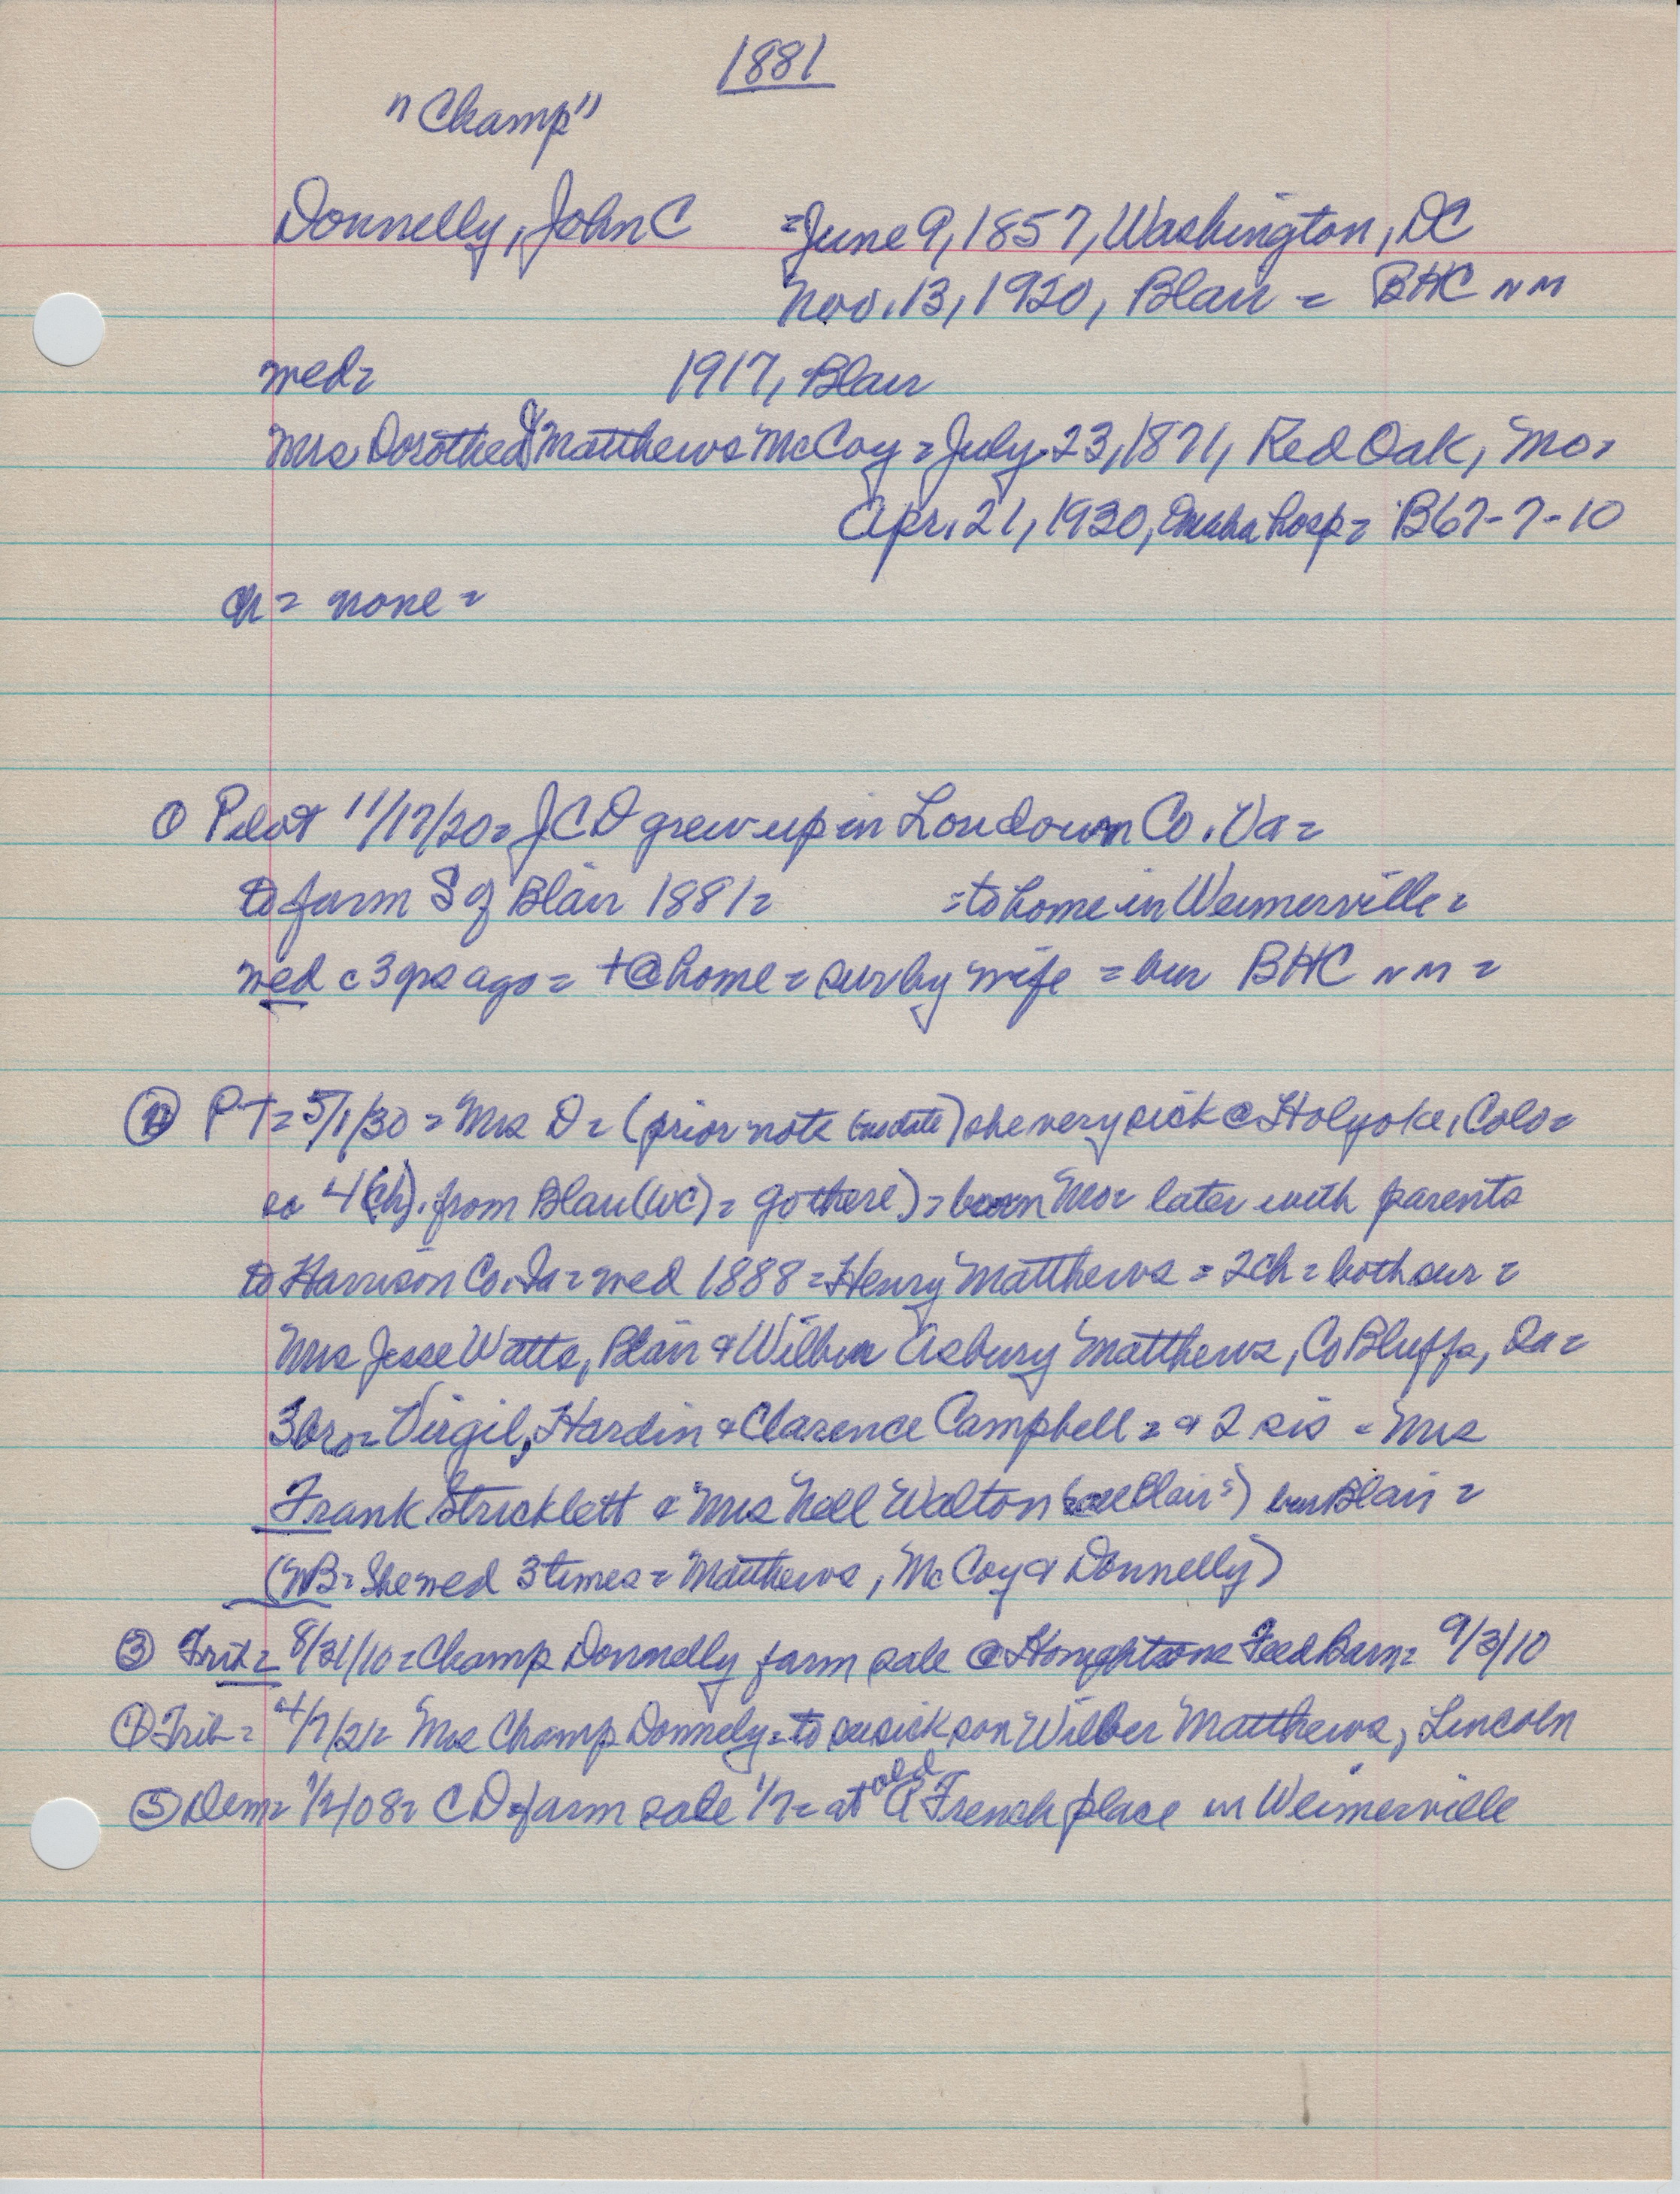 1881
"Champ"
Donnelly, John C =June 9, 1857, Washington, DC
Nov. 13, 1920, Blair = BHC NM
wed= 1917, Blair
Mrs Dorothea Matthews McCoy = July 23, 1871, Red Oak, Mo=
Apr. 21, 1930, Omaha hosp= B67-7-10
ch= none =
① Pilot 11/17/20= JCD grew up in Loudown Co. Va=
to farm S of Blair 1881= =to home in Weimerville=
wed c 3 yrs ago= +@home= sur by wife = bur BHC NM =
② PT= 5/1/30 = Mrs D= (prior note (no date) she very sick @ Holyoke, Colo=
so 4(ch). from Blair (WC) = go there) = born Mo= later with parents
to Harrison Co. Ia= wed 1888 = Henry Matthews = 2ch= both sur =
Mrs Jesse Watts, Blair & Wilbur Asbury Matthews, Co Bluffs, Ia=
3bro= Virgil, Hardin & Clarence Campbell = & 2 sis = Mrs
Frank Stricklett & Mrs Nell Walton (all Blair=) bur Blair =
(NB= She wed 3 times = Matthews, McCoy & Donnelly)
③ Trib= 8/31/10= Champ Donnelly farm sale @ Feed Barn= 9/3/10
④ Trib= 4/7/21= Mrs Champ Donnely= to see sick son Wilber Matthews, Lincoln
⑤ Dem= 1/2/08= CD farm sale 1/7= at old A French place in Weimerville